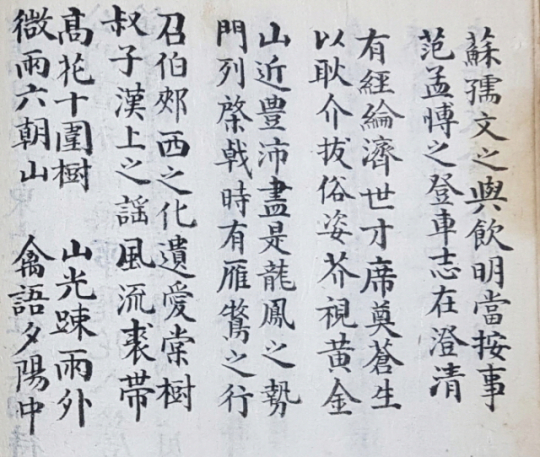 蘇孺文之與飲明當按事
范孟博之登車志在澄清
有經綸濟世才席奠蒼生
以耿介拔俗姿芥視黃金
山近豊沛盡是龍鳳之勢
門列棨戟時有雁鶩之行
召伯郊西之化遺愛棠樹
叔子漢上之謡風流裘帶
高花十圍樹 山光踈雨外
微雨六朝山 禽語夕陽中